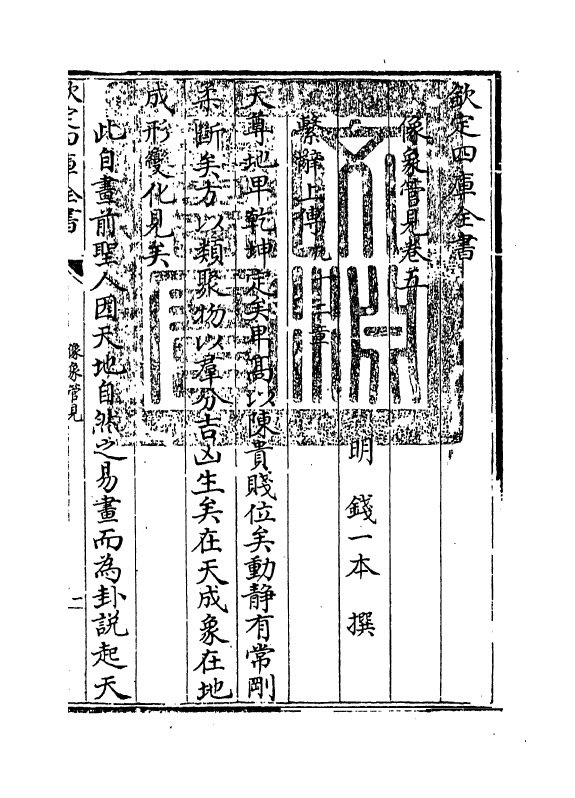 欽定四庫全書
像象管見卷五
明 錢一本 撰
繫辭上傳凡十二章
天尊地卑乾坤定矣卑高以陳貴賤位矣動靜有常剛
柔斷矣方以類聚物以羣分吉凶生矣在天成象在地
成形變化見矣
此自畫前聖人因天地自然之易畫而為卦說起天
欽定四庫全書
像象管見
一